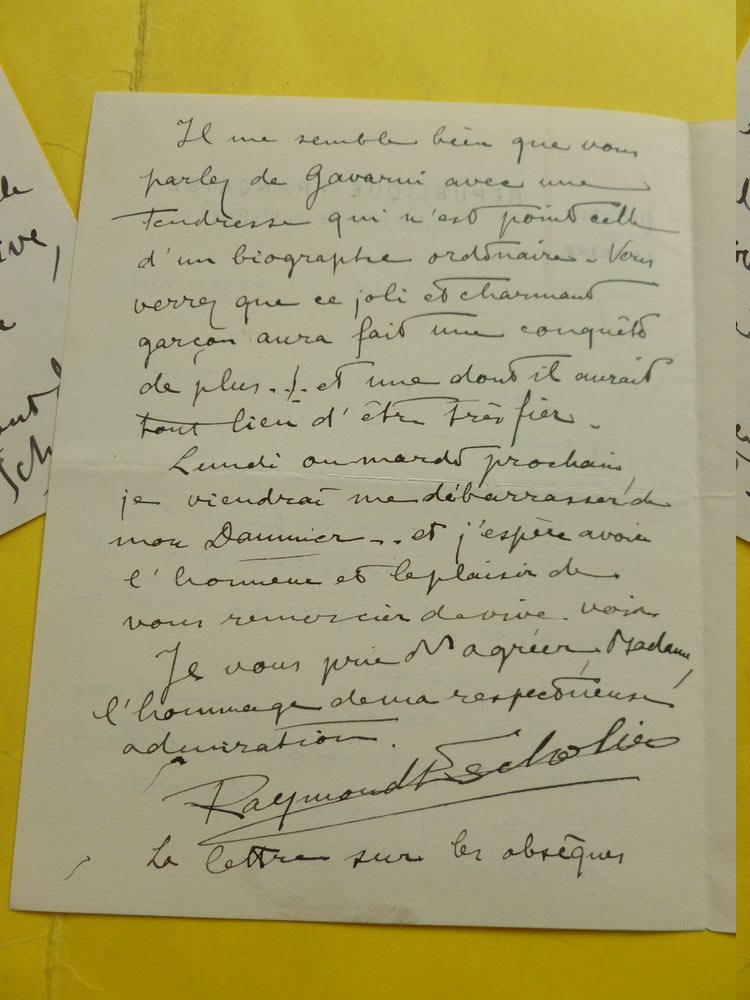 Il me semble bien que vous
parlez de Gavarni avec une
tendresse qui n'est point celle
d'un biographe ordinaire. Vous
verrez que ce joli et charmant
garçon aura fait une conquête
de plus... et une dont il aurait
tout lieu d'être très fier.
Lundi ou mardi prochain,
je viendrai me débarrasser de
mon Daumier... et j'espère avoir
l'honneur et le plaisir de
vous remercier de vive voix.
Je vous prie d'agréer, Madame,
l'hommage de ma respectueuse
admiration.
Raymond Escholier
La lettre sur les obsèques